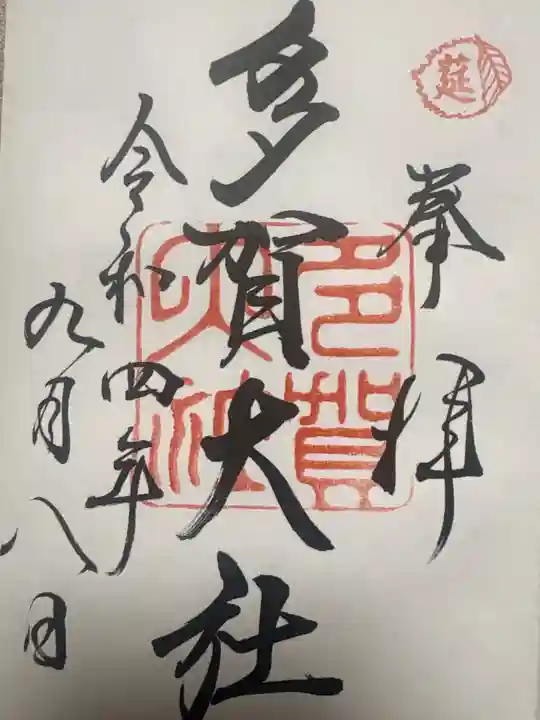 莚
奉拝
多賀大社
多賀大社
令和四年
九月八日